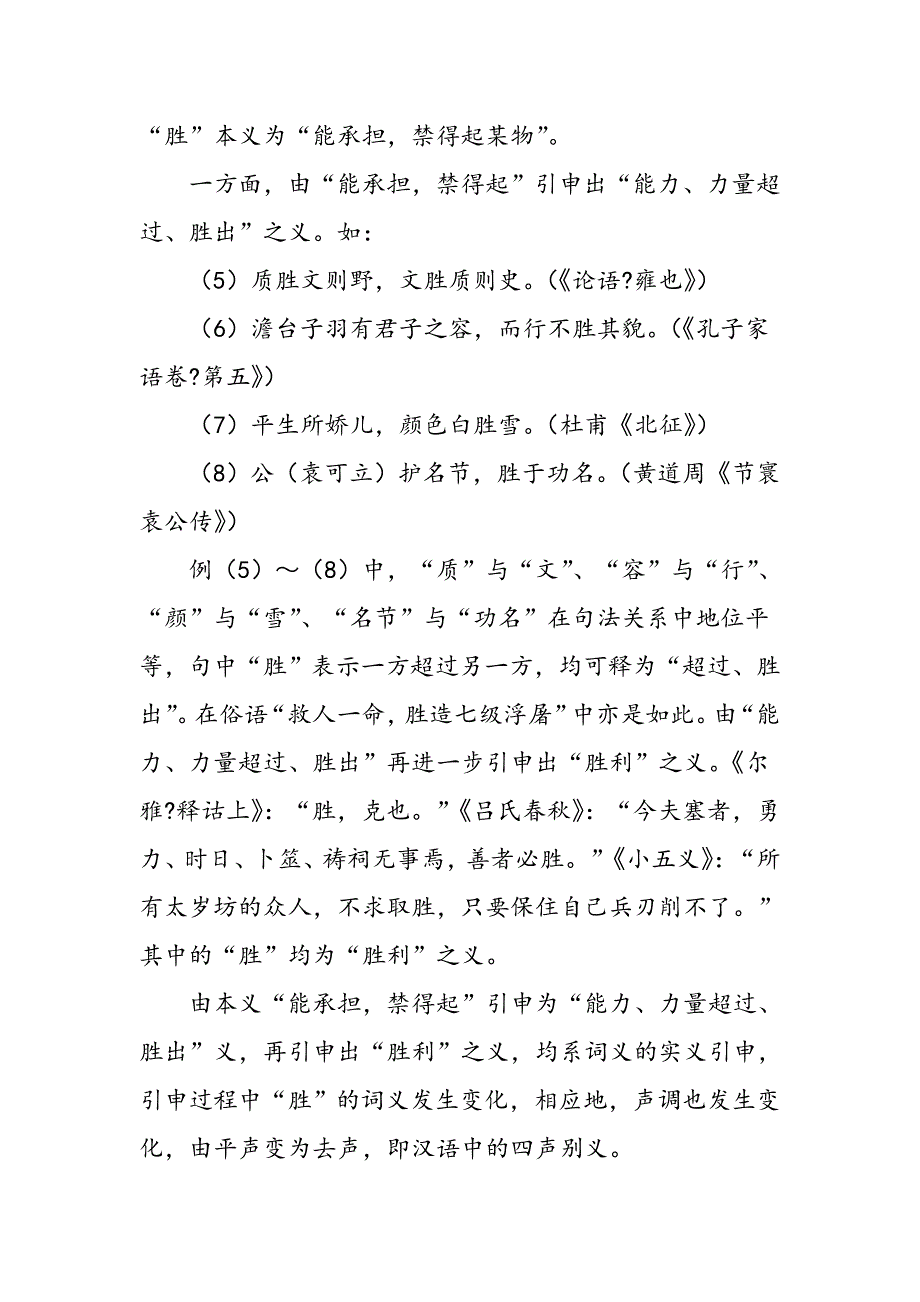 “胜”本义为“能承担，禁得起某物”。
一方面，由“能承担，禁得起”引申出“能力、力量超
过、胜出”之义。如：
（5）质胜文则野，文胜质则史。（《论语?雍也》）
（6）澹台子羽有君子之容，而行不胜其貌。（《孔子家
语卷?第五》）
（7）平生所娇儿，颜色白胜雪。（杜甫《北征》）
（8）公（袁可立）护名节，胜于功名。（黄道周《节寰
袁公传》）
例（5）～（8）中，“质”与“文”、“容”与“行”、
“颜”与“雪”、“名节”与“功名”在句法关系中地位平
等，句中“胜”表示一方超过另一方，均可释为“超过、胜
出”。在俗语“救人一命，胜造七级浮屠”中亦是如此。由“能
力、力量超过、胜出”再进一步引申出“胜利”之义。《尔
雅?释诂上》：“胜，克也。”《吕氏春秋》：“今夫塞者，勇
力、时日、卜筮、祷祠无事焉，善者必胜。”《小五义》：“所
有太岁坊的众人，不求取胜，只要保住自己兵刃削不了。”
其中的“胜”均为“胜利”之义。
由本义“能承担，禁得起”引申为“能力、力量超过、
胜出”义，再引申出“胜利”之义，均系词义的实义引申，
引申过程中“胜”的词义发生变化，相应地，声调也发生变
化，由平声变为去声，即汉语中的四声别义。